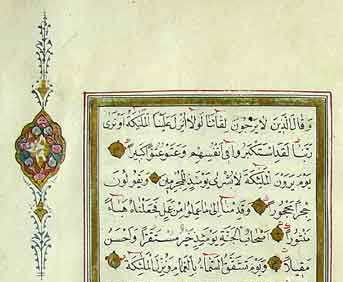 وَقَالَ الَّذِينَ لَا يَرْجُونَ لِقَاءَنَا لَوْلَا أُنْزِلَ عَلَيْنَا الْمَلٰئِكَةُ اَوْ نَرٰى
رَبَّنَا لَقَدِ اسْتَكْبَرُوا فِى اَنْفُسِهِمْ وَعَتَوْ عُتُوًّا كَبِيرًا
يَوْمَ يَرَوْنَ الْمَلٰئِكَةَ لَا بُشْرٰى يَوْمَئِذٍ لِلْمُجْرِمِينَ وَيَقُولُونَ
حِجْرًا مَحْجُورًا وَقَدِمْنَا اِلٰى مَا عَمِلُوا مِنْ عَمَلٍ فَجَعَلْنَاهُ هَبَاءً
مَنْثُورًا اَصْحَابُ الْجَنَّةِ يَوْمَئِذٍ خَيْرٌ مُسْتَقَرًّا وَاَحْسَنُ
مَقِيلًا وَيَوْمَ تَشَقَّقُ السَّمَاءُ بِالْغَمَامِ وَنُزِّلَ الْمَلٰئِكَةُ